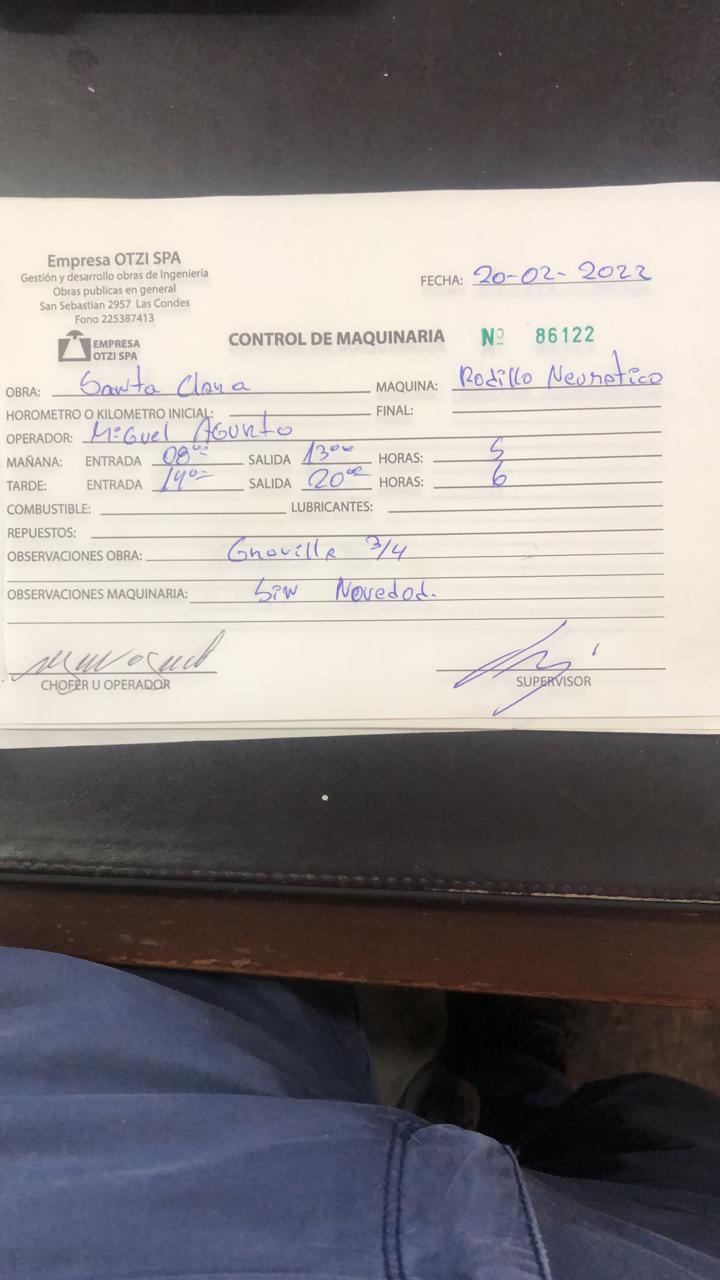 Empresa OTZI SPA
Gestión y desarrollo obras de Ingeniería
Obras publicas en general
San Sebastian 2957 Las Condes
Fono 225387413
EMPRESA
OTZI SPA
FECHA: 20-02-2022
CONTROL DE MAQUINARIA Nº 86122
OBRA: Santa Clara MAQUINA: Rodillo Neumatico
HOROMETRO O KILOMETRO INICIAL: FINAL:
OPERADOR: Miguel Agurto
MAÑANA: ENTRADA 08⁰⁰ SALIDA 13⁰⁰ HORAS: 5
TARDE: ENTRADA 14⁰⁰ SALIDA 20⁰⁰ HORAS: 6
COMBUSTIBLE: LUBRICANTES:
REPUESTOS:
OBSERVACIONES OBRA: Gravilla 3/4
OBSERVACIONES MAQUINARIA: Sin Novedad.
CHOFER U OPERADOR SUPERVISOR